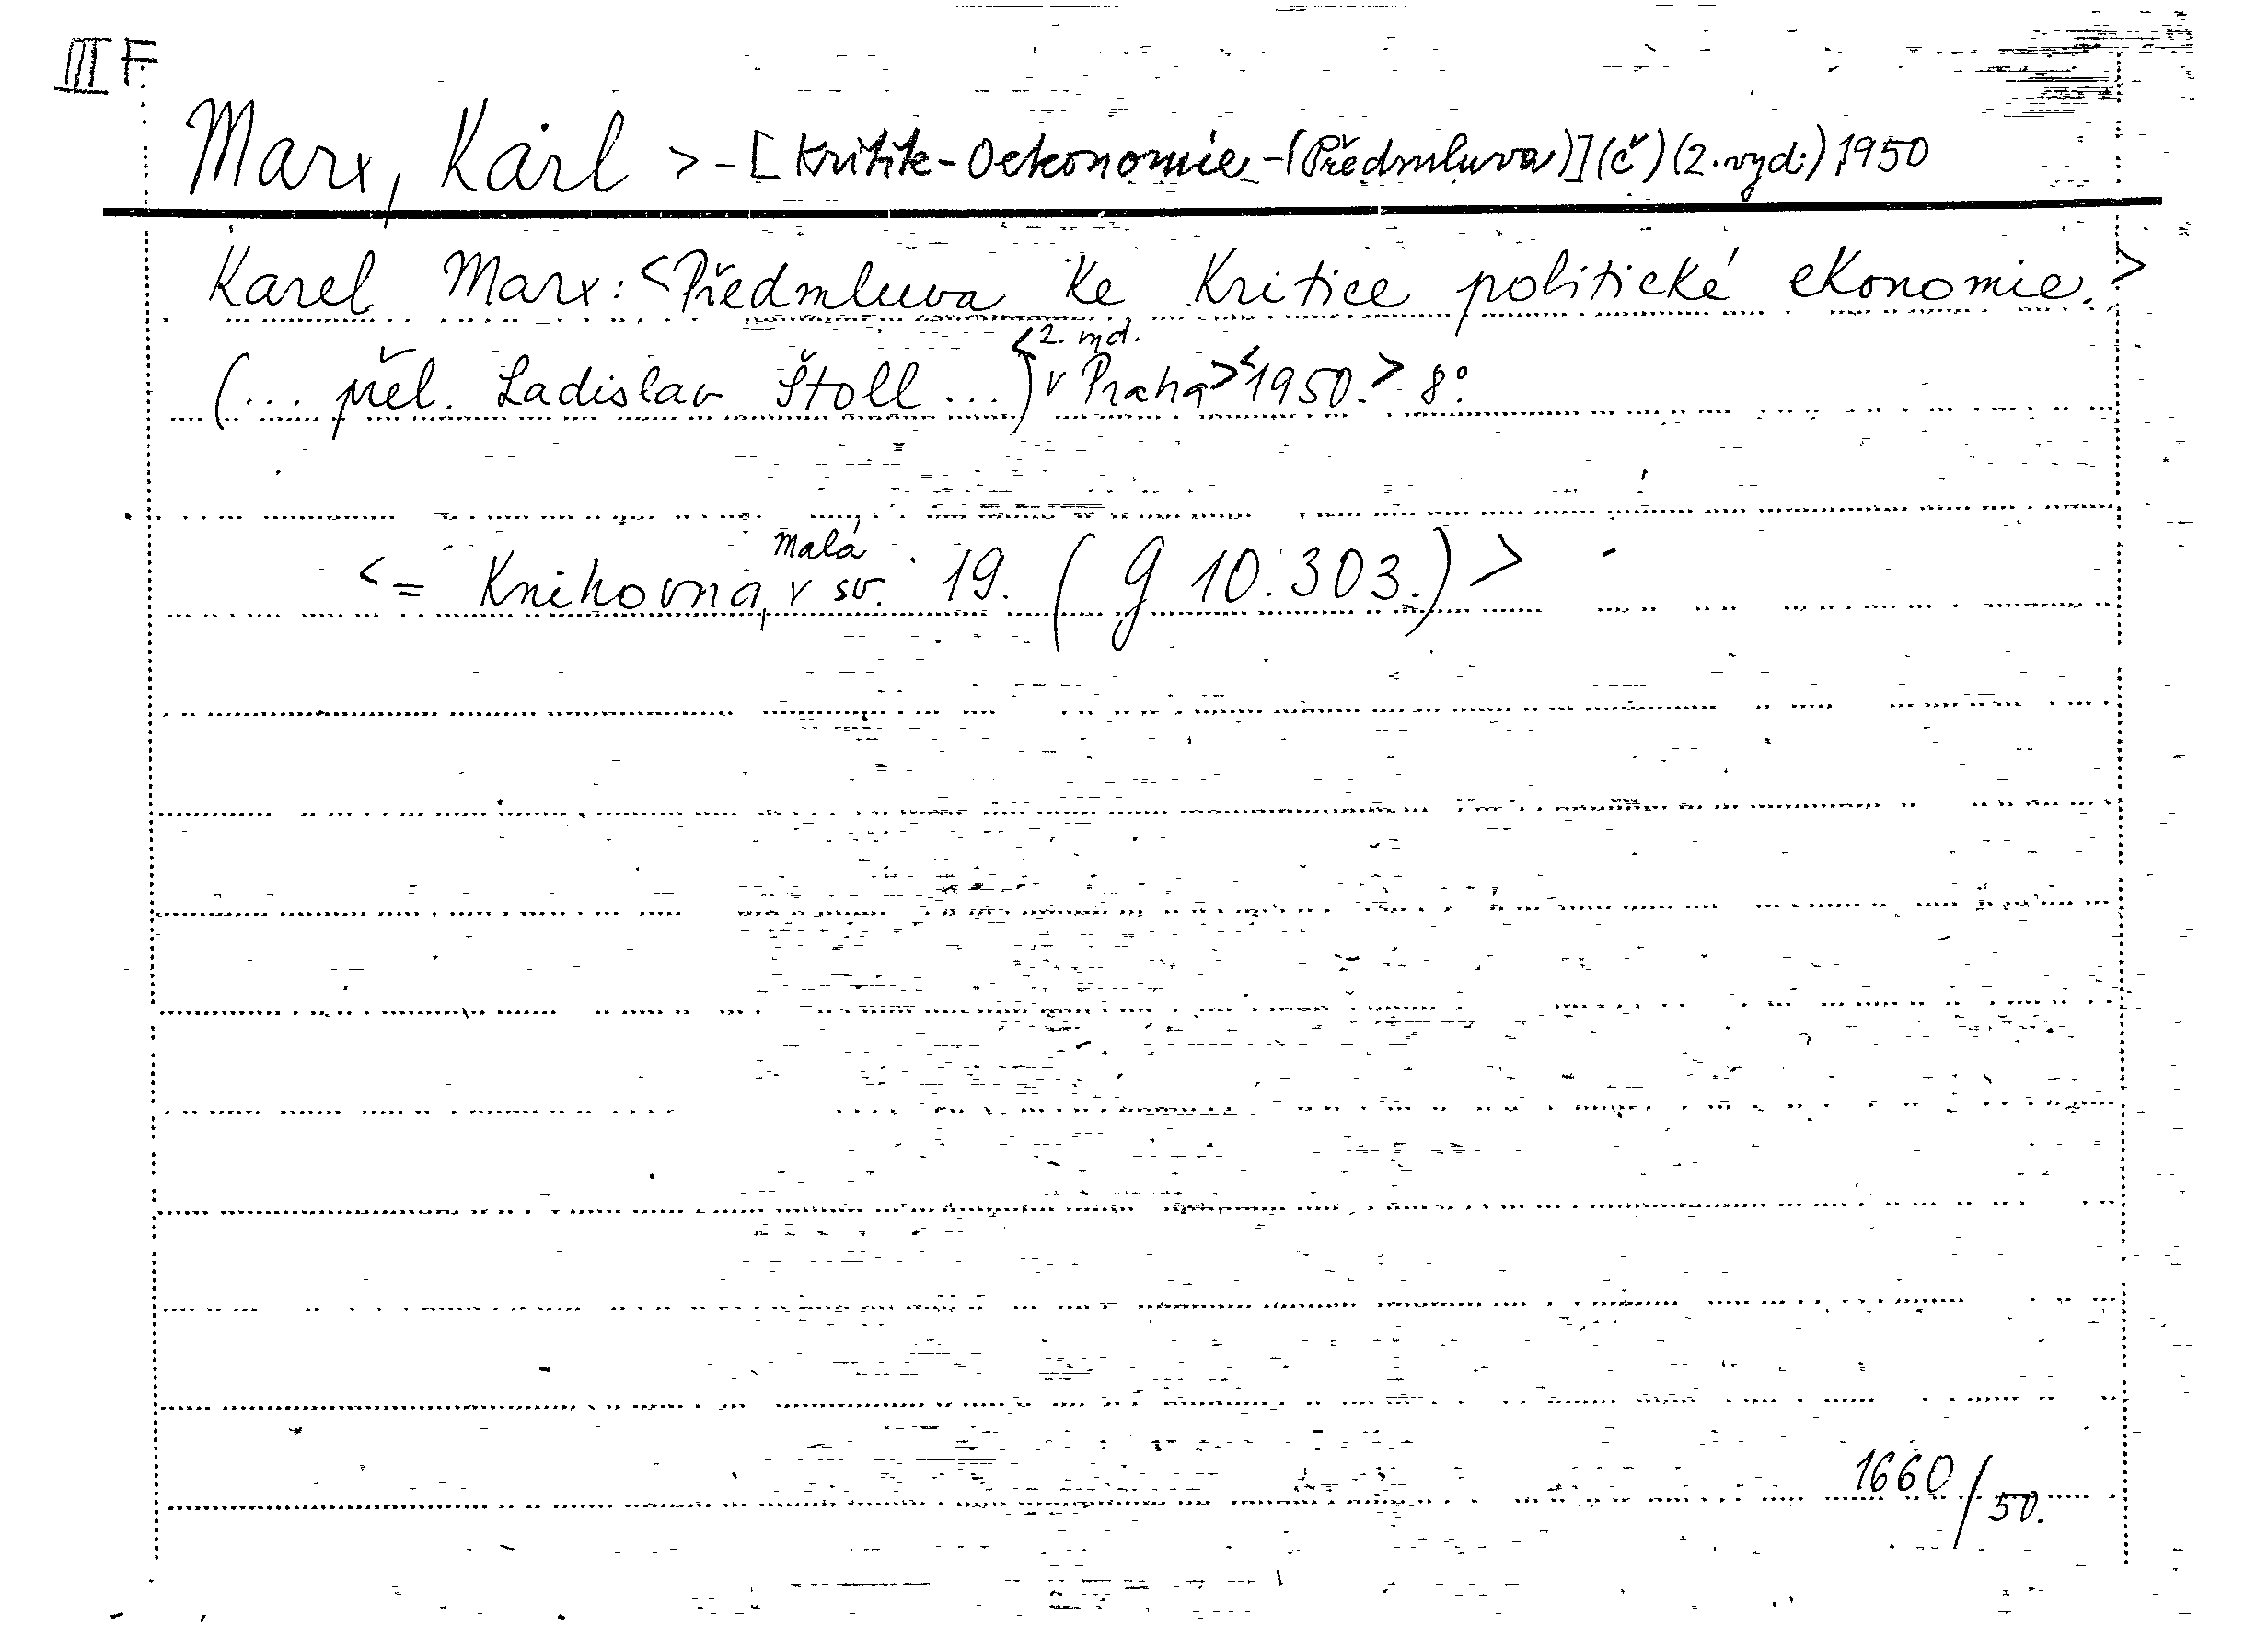 III F
Marx, Karl > - [Kritik - Oekonomie - (Předmluva)] (č) (2. vyd.) 1950
Karel Marx: <Předmluva ke Kritice politické ekonomie.>
<2. vyd.
(... přel. Ladislav Štoll ...) v Praha> <1950.> 8°.
malá
<= Knihovna, v sv. 19. (g 10.303.) >
1660/50.